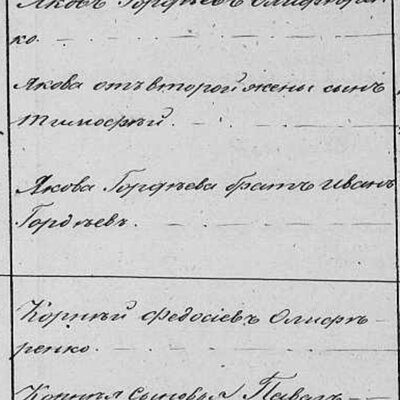 Яковъ Гордѣевъ Олифирен-
ко.
Якова отъ второй жены сынъ
Тимофѣй.
Якова Гордѣева братъ Иванъ
Гордѣевъ.
Корнѣй Федосіевъ Олифѣ-
ренко.
Корнѣя сыновья Павелъ